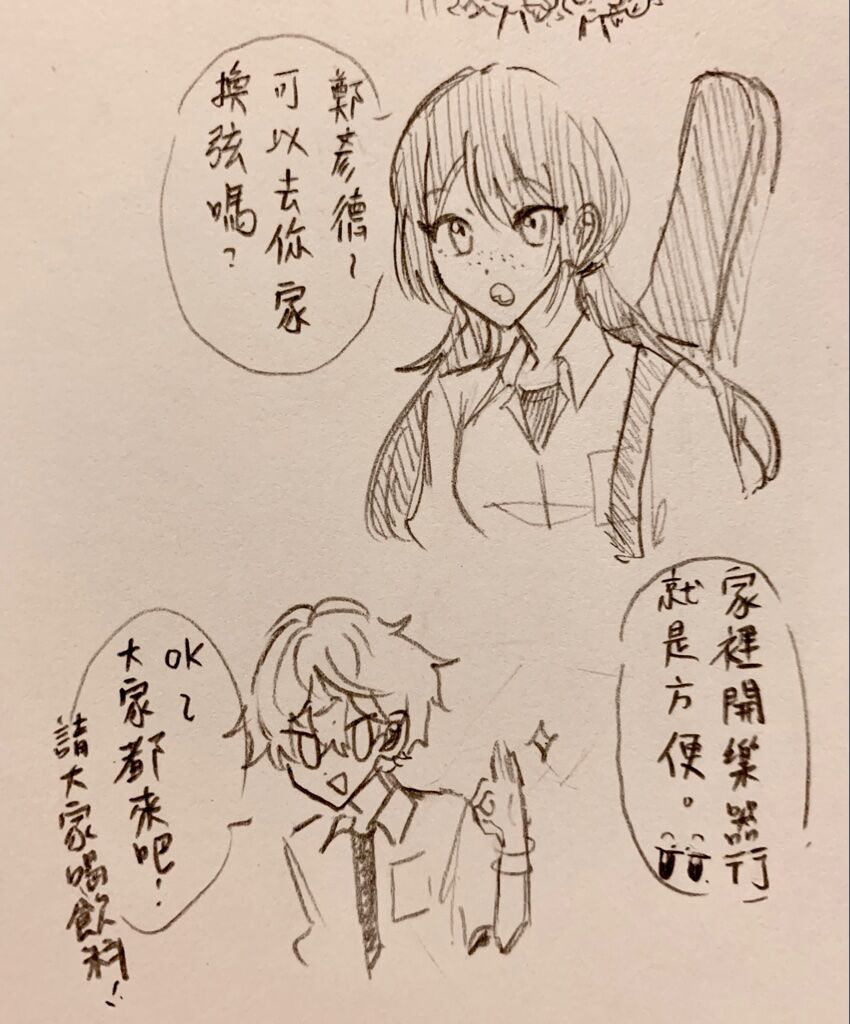 鄭彥德~
可以去你家
換弦嗎?
家裡開樂器行
就是方便。
OK~
大家都來吧!
請大家喝飲料!